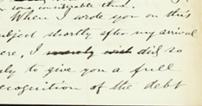 When I wrote you on this
subject shortly after my arrival
here, I merely wish did so
only to give you a full
recognition of the debt